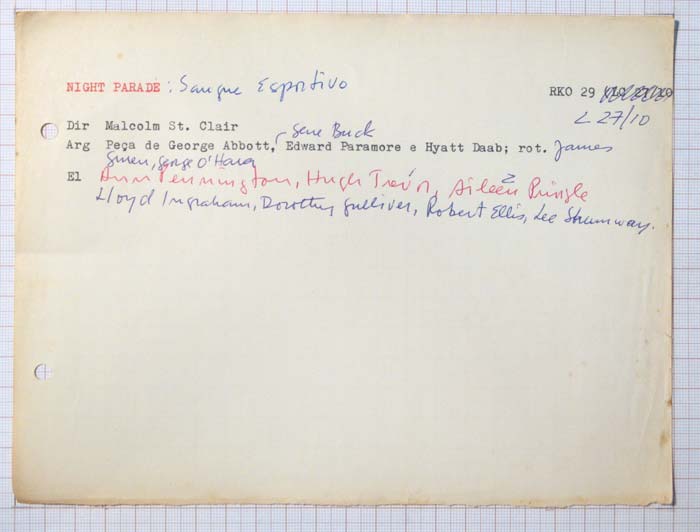 NIGHT PARADE : Sangue Esportivo RKO 29
L 27/10
Dir Malcolm St. Clair
Gene Buck
Arg Peça de George Abbott, Edward Paramore e Hyatt Daab; rot. James
Gruen, George O'Hara
El Ann Pennington, Hugh Trevor, Aileen Pringle
2
Lloyd Ingraham, Dorothy Gulliver, Robert Ellis, Lee Shumway.